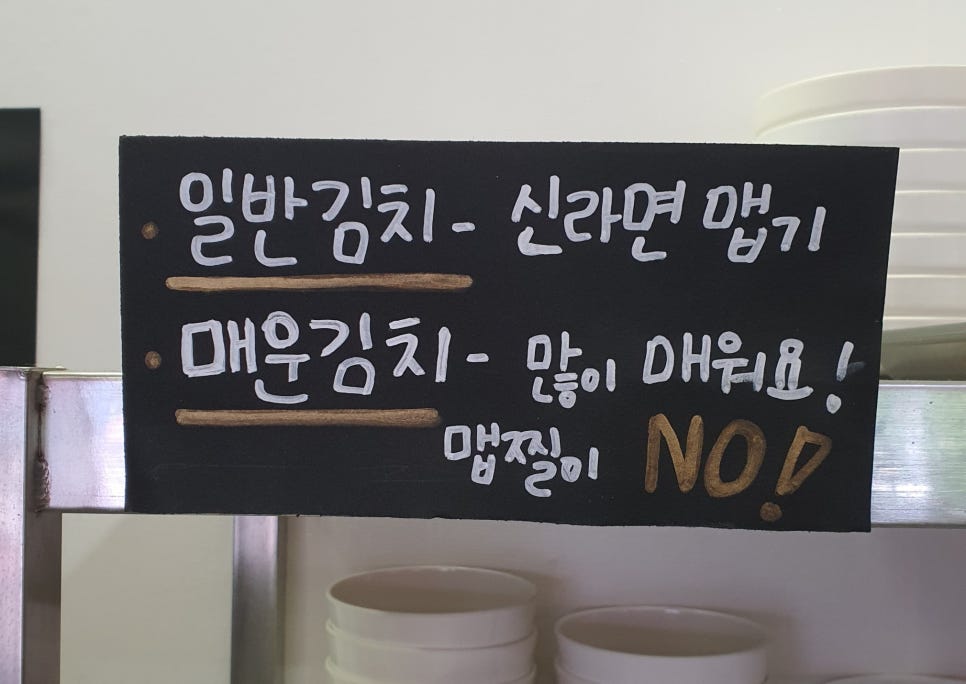 • 일반김치 - 신라면 맵기
• 매운김치 - 많이 매워요!
맵찔이 NO!